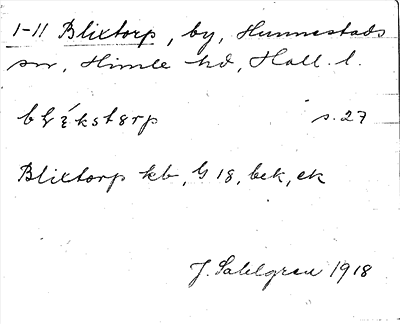 1-11 Blixtorp, by, Hunnestads
sn, Himle hd, Hall. l.
s. 27
Blixtorp kb, G 18, bek, ek
J. Sahlgren 1918